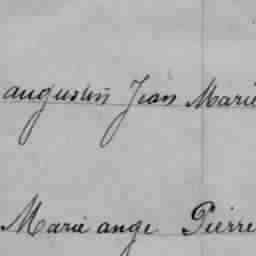 augustin Jean Marie
Marie ange Pierre